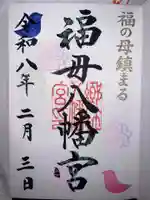 福の母鎮まる
福母八幡宮
令和八年二月三日